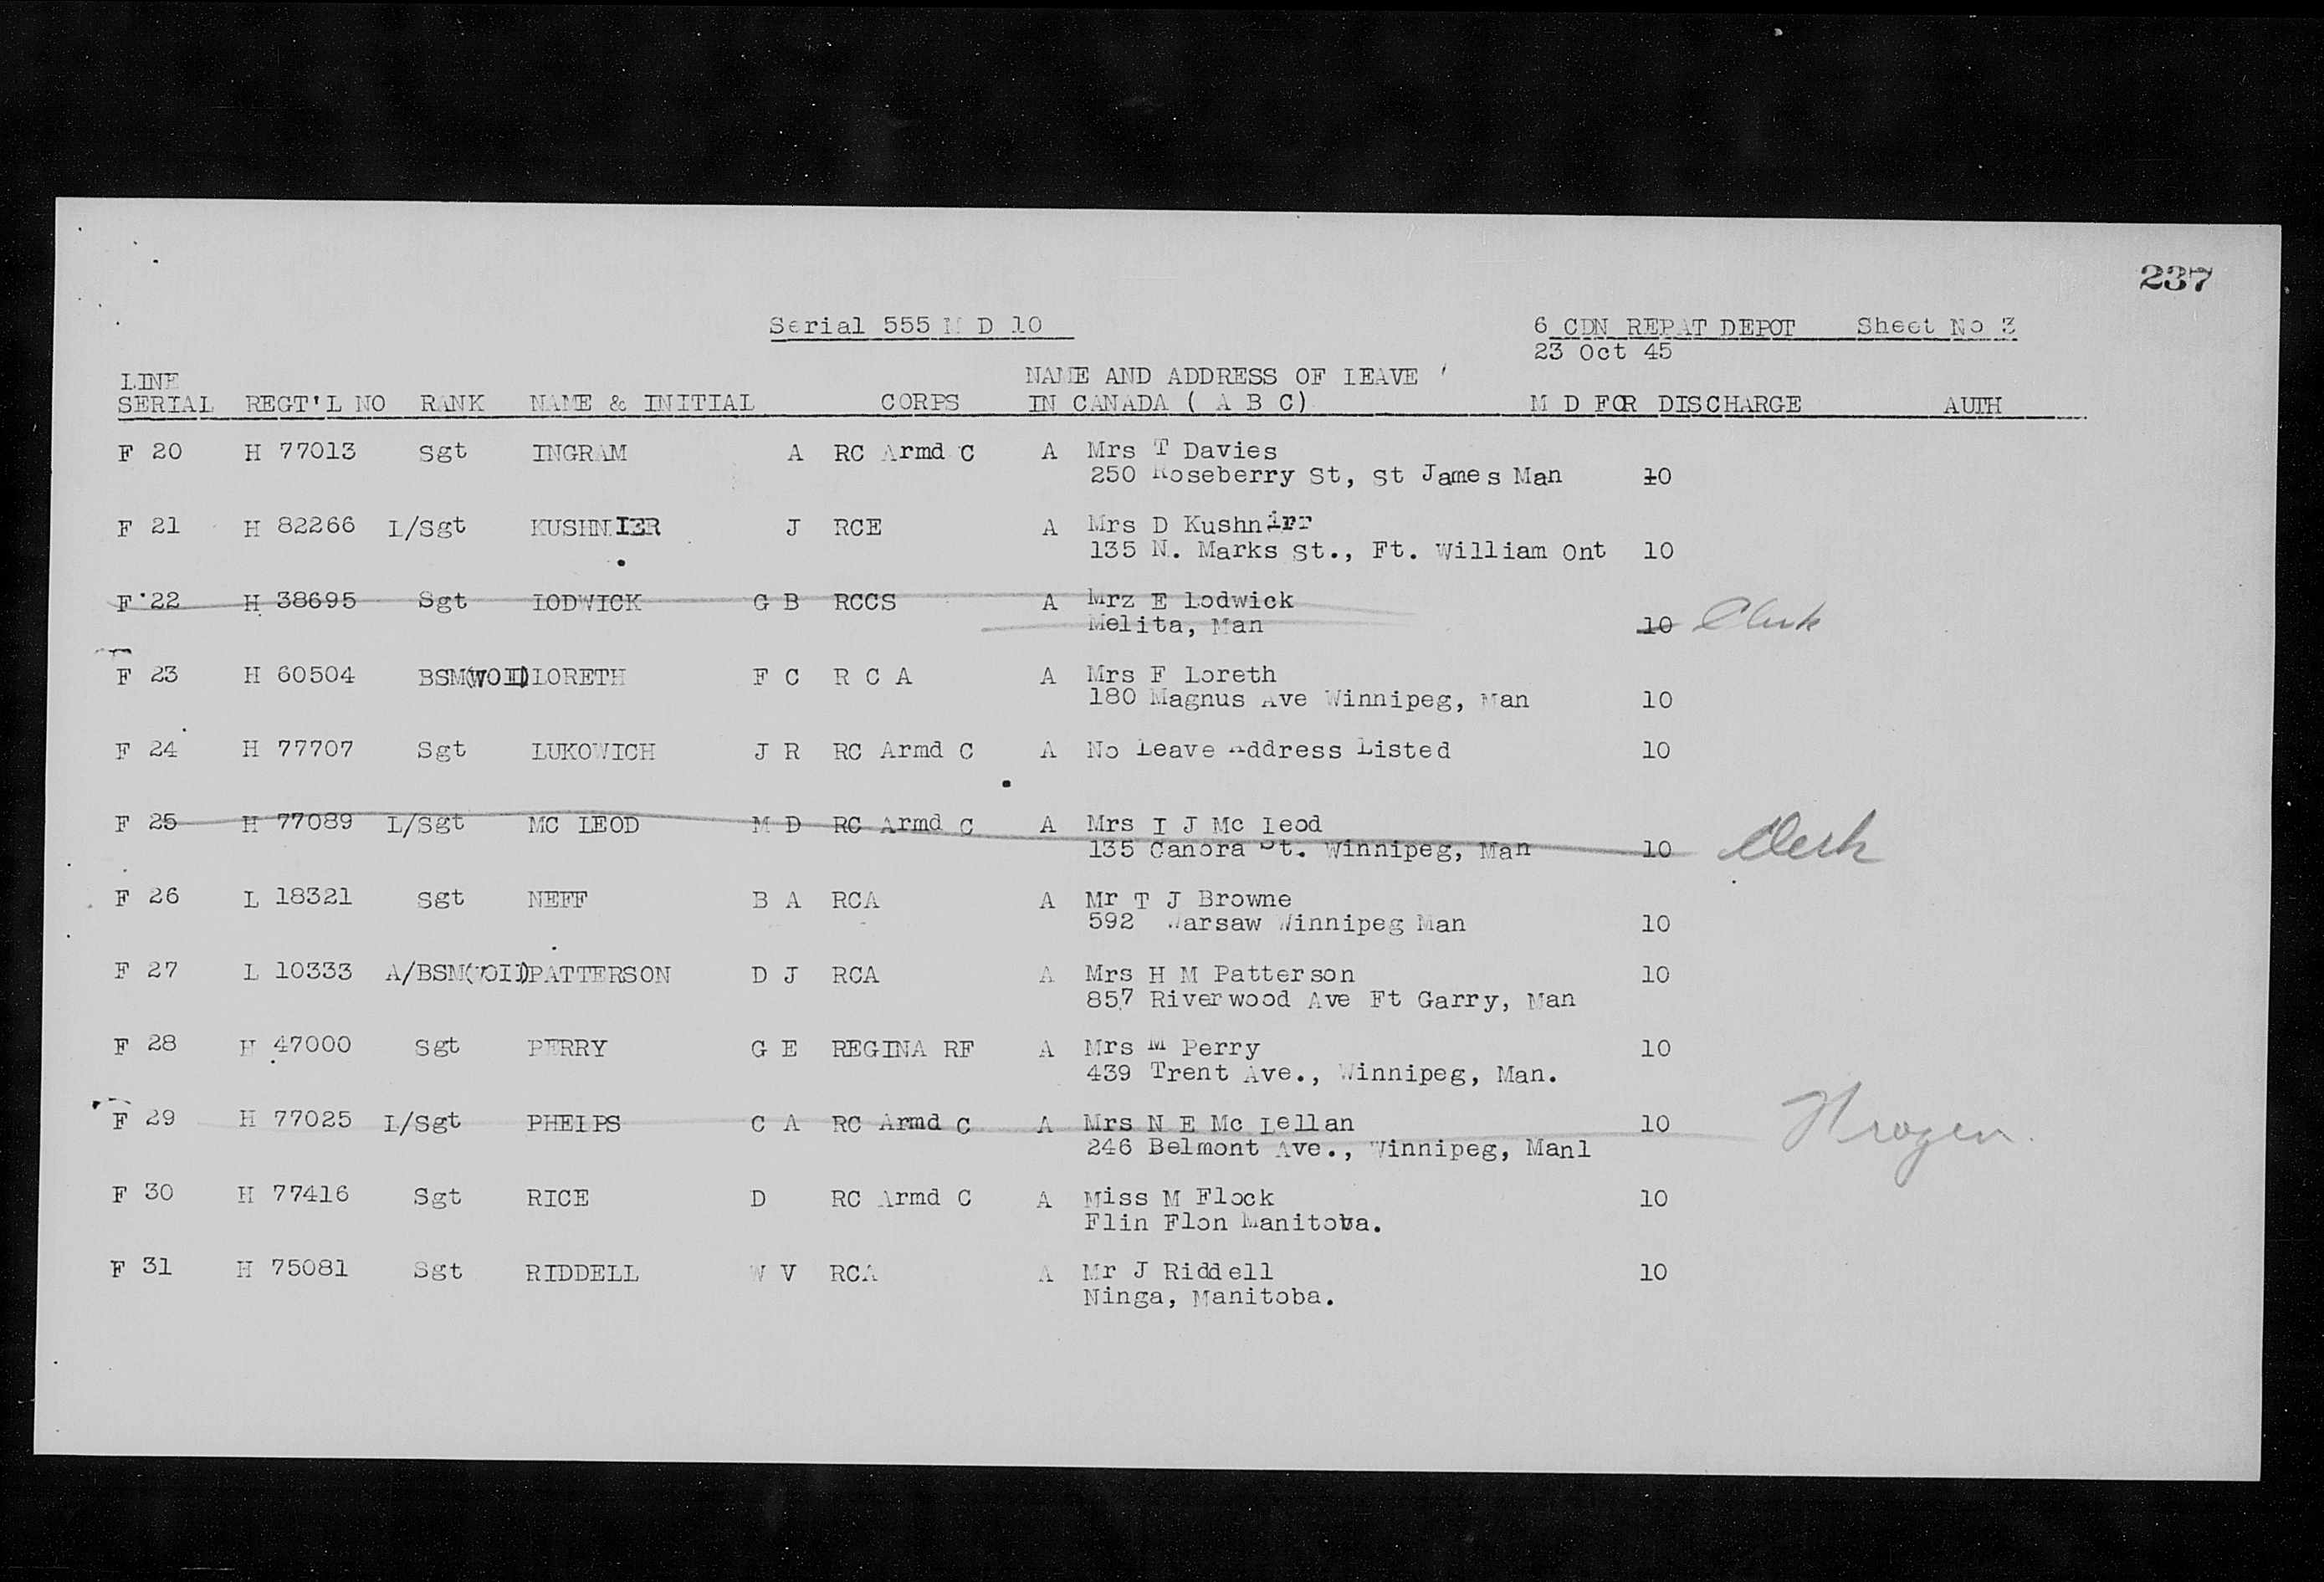 237
Serial 555 M D 10 6 CDN REPAT DEPOT Sheet No 3
23 Oct 45
LINE NAME AND ADDRESS OF LEAVE
SERIAL REGT'L NO RANK NAME & INITIAL CORPS IN CANADA ( A B C) M D FOR DISCHARGE AUTH
F 20 H 77013 Sgt INGRAM A RC Armd C A Mrs T Davies
250 Roseberry St, St James Man 10
F 21 H 82266 L/Sgt KUSHNIER J RCE A Mrs D Kushnirr
135 N. Marks St., Ft. William Ont 10
F 22 H 38695 Sgt LODWICK G B RCCS A Mrz E Lodwick
Melita, Man 10 Clerk
F 23 H 60504 BSM(WOII) LORETH F C R C A A Mrs F Loreth
180 Magnus Ave Winnipeg, Man 10
F 24 H 77707 Sgt LUKOWICH J R RC Armd C A No Leave Address Listed 10
F 25 H 77089 L/Sgt MC LEOD M D RC Armd C A Mrs I J Mc Leod
135 Canora St. Winnipeg, Man 10 Clerk
F 26 L 18321 Sgt NEFF B A RCA A Mr T J Browne
592 Warsaw Winnipeg Man 10
F 27 L 10333 A/BSM(WOII) PATTERSON D J RCA A Mrs H M Patterson 10
857 Riverwood Ave Ft Garry, Man
F 28 H 47000 Sgt PERRY G E REGINA RF A Mrs M Perry 10
439 Trent Ave., Winnipeg, Man.
F 29 H 77025 L/Sgt PHELPS C A RC Armd C A Mrs N E Mc Lellan 10
246 Belmont Ave., Winnipeg, Manl
F 30 H 77416 Sgt RICE D RC Armd C A Miss M Flock 10
Flin Flon Manitoba.
F 31 H 75081 Sgt RIDDELL W V RCA A Mr J Riddell 10
Ninga, Manitoba.